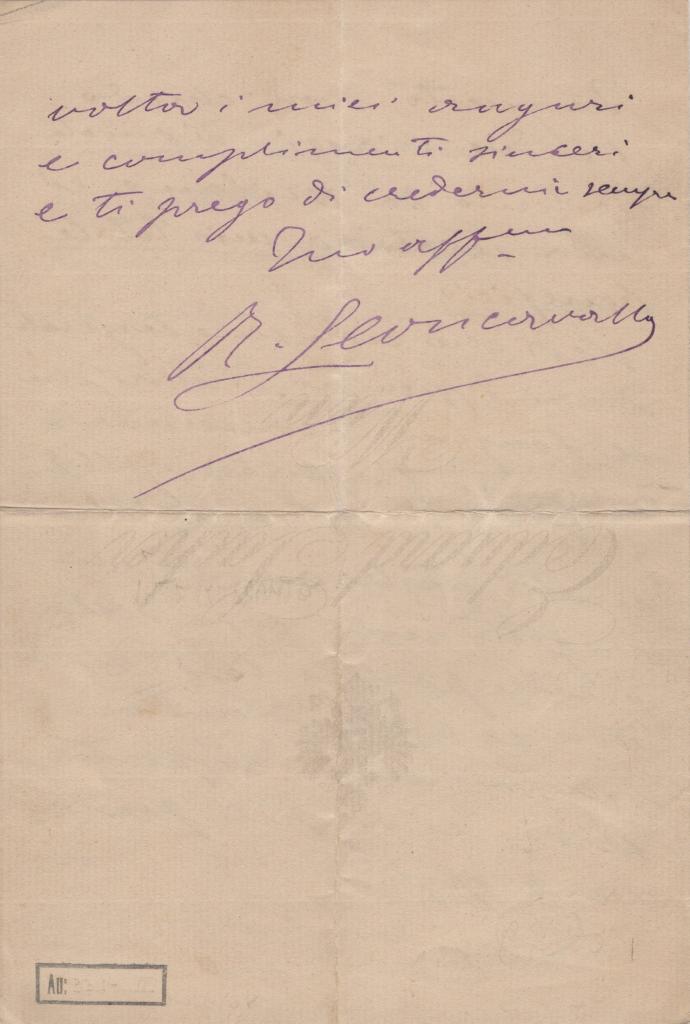 volta i miei auguri
e complimenti sinceri
e ti prego di credermi sempre
Tuo affmo
R. Leoncavallo
Au: